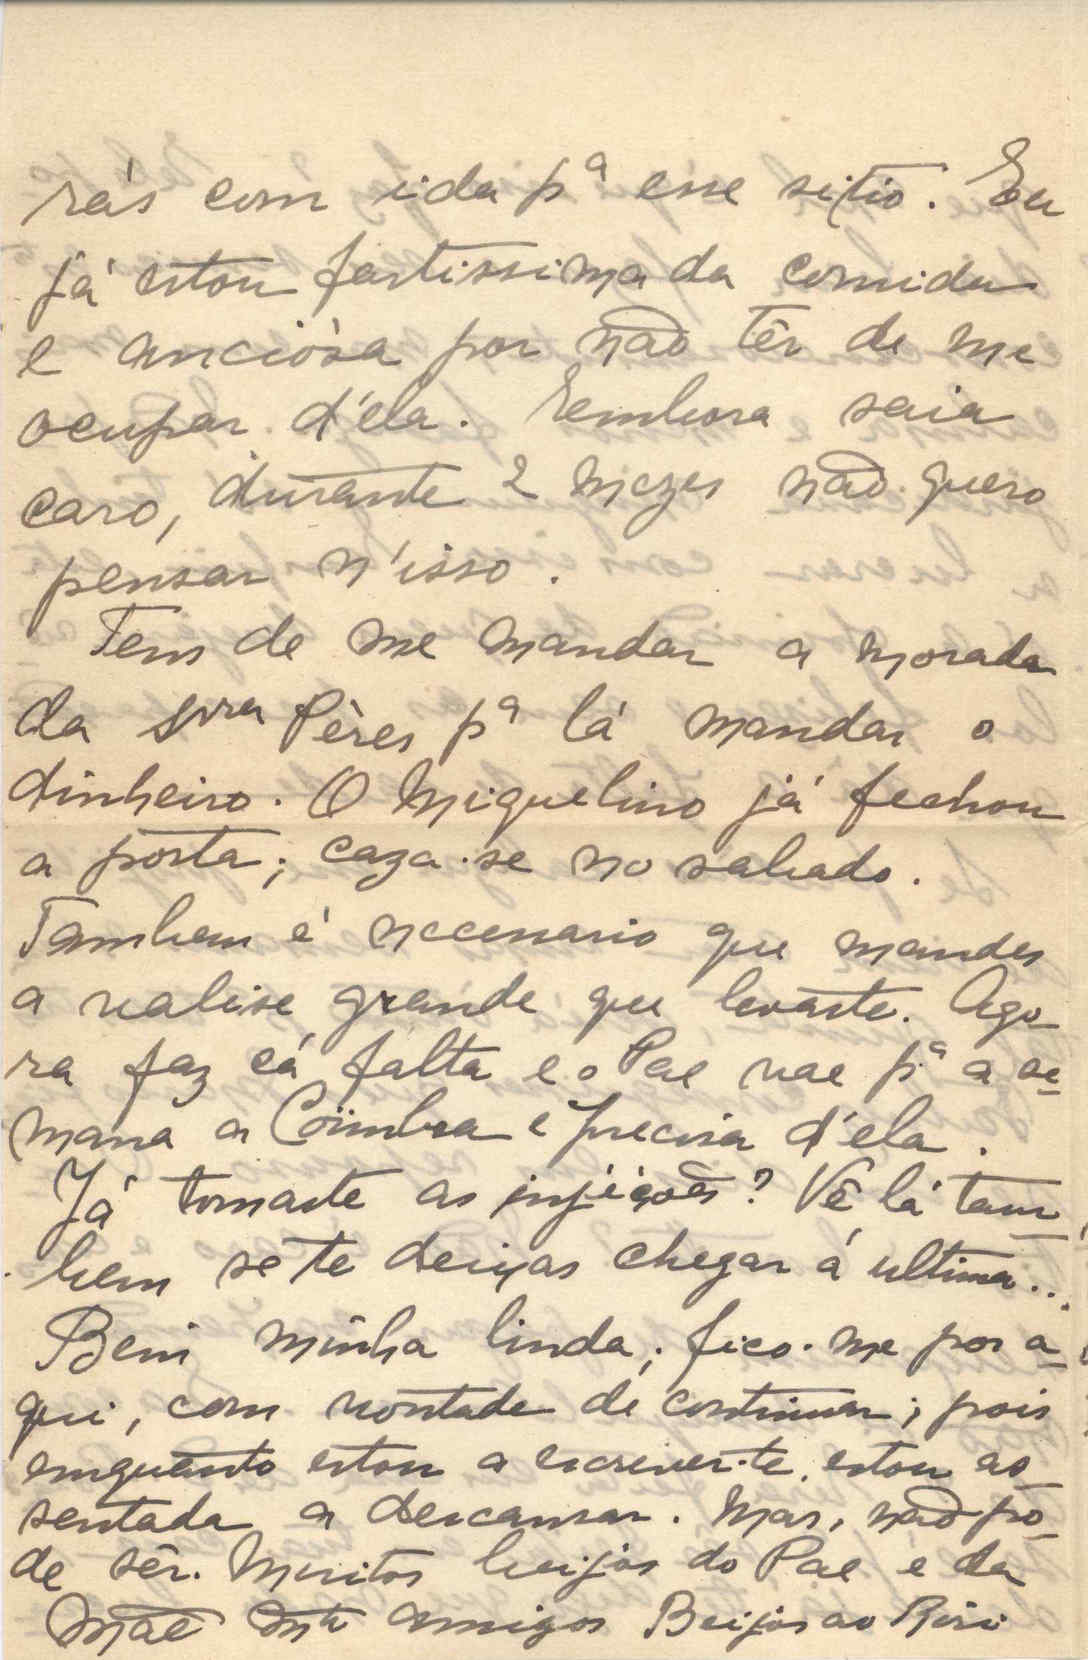 rás com ida pª esse sitio. Eu
já estou fartissima da comida
e anciósa por não têr de me
ocupar d'ela. Embora saia
caro, durante 2 mezes não quero
pensar n'isso.
Tens de me mandar a morada
da Snra Pères pª lá mandar o
dinheiro. O Miguelino já fechou
a porta; caza-se no sabado.
Tambem é necessario que mandes
a valise grande que levaste. Ago-
ra faz cá falta e o Pae vae pª a se-
mana a Coimbra e precisa d'ela.
Já tomaste as injéções? Vê lá tam-
bem se te deixas chegar á ultima...
Bem minha linda; fico-me por a-
qui, com vontade de continuar; pois
emquanto estou a escrever-te, estou as-
sentada a descansar. Mas, não pó-
de sêr. Muitos beijos do Pae e da
Mãe mtº amigos Beijos ao